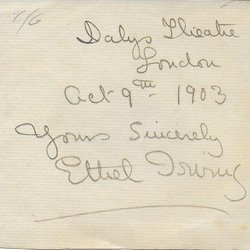 V/G
Dalys Theatre
London
Oct 9th 1903
Yours Sincerely
Ethel Irving